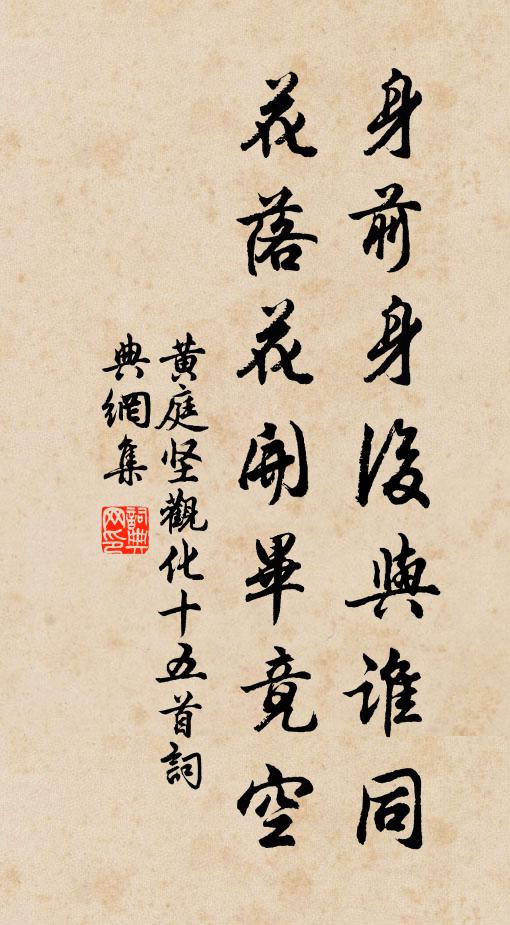 身前身後與誰同
花落花開畢竟空
黄庭坚觀化十五首詞
典網集
詞典
网印